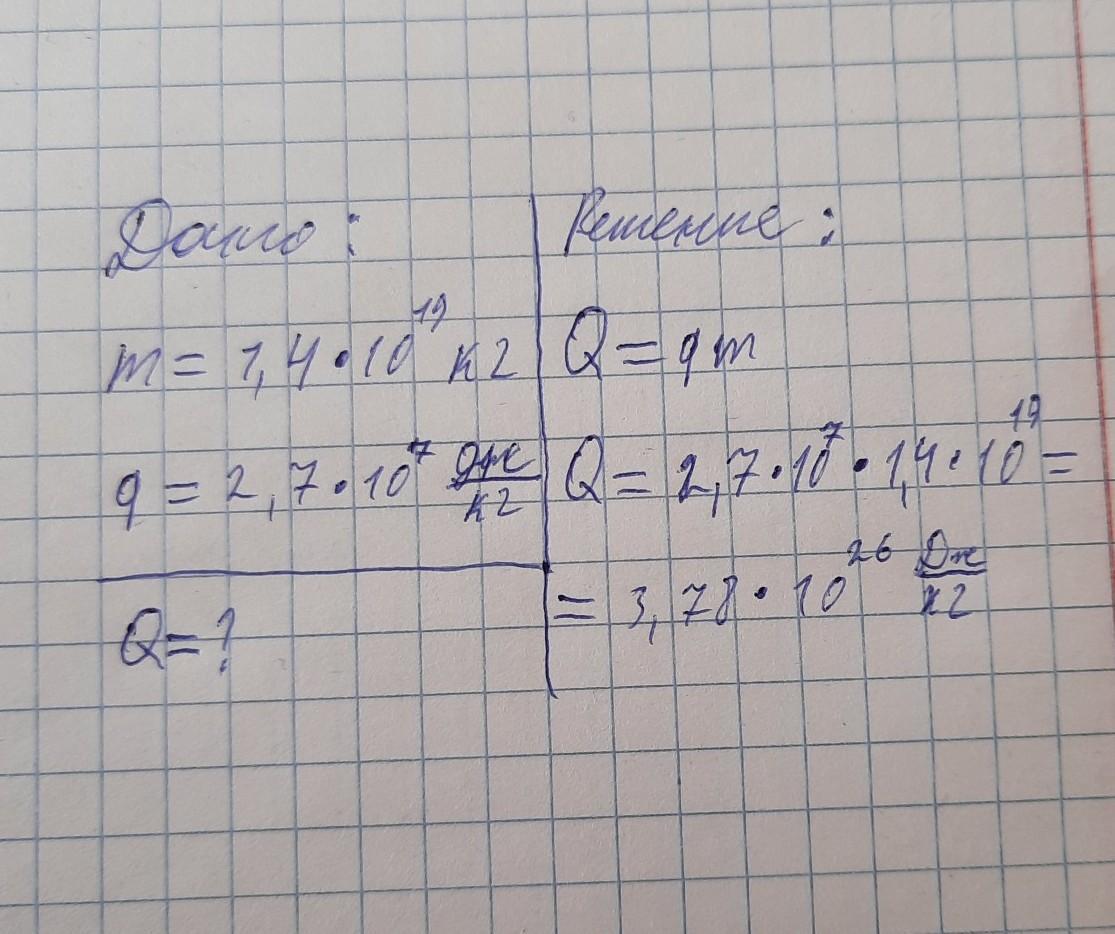 Дано:
m = 1,4 · 10¹⁹ кг
q = 2,7 · 10⁷ дж/кг
Q = ?
Решение:
Q = qm
Q = 2,7 · 10⁷ · 1,4 · 10¹⁹ =
= 3,78 · 10²⁶ Дж/кг